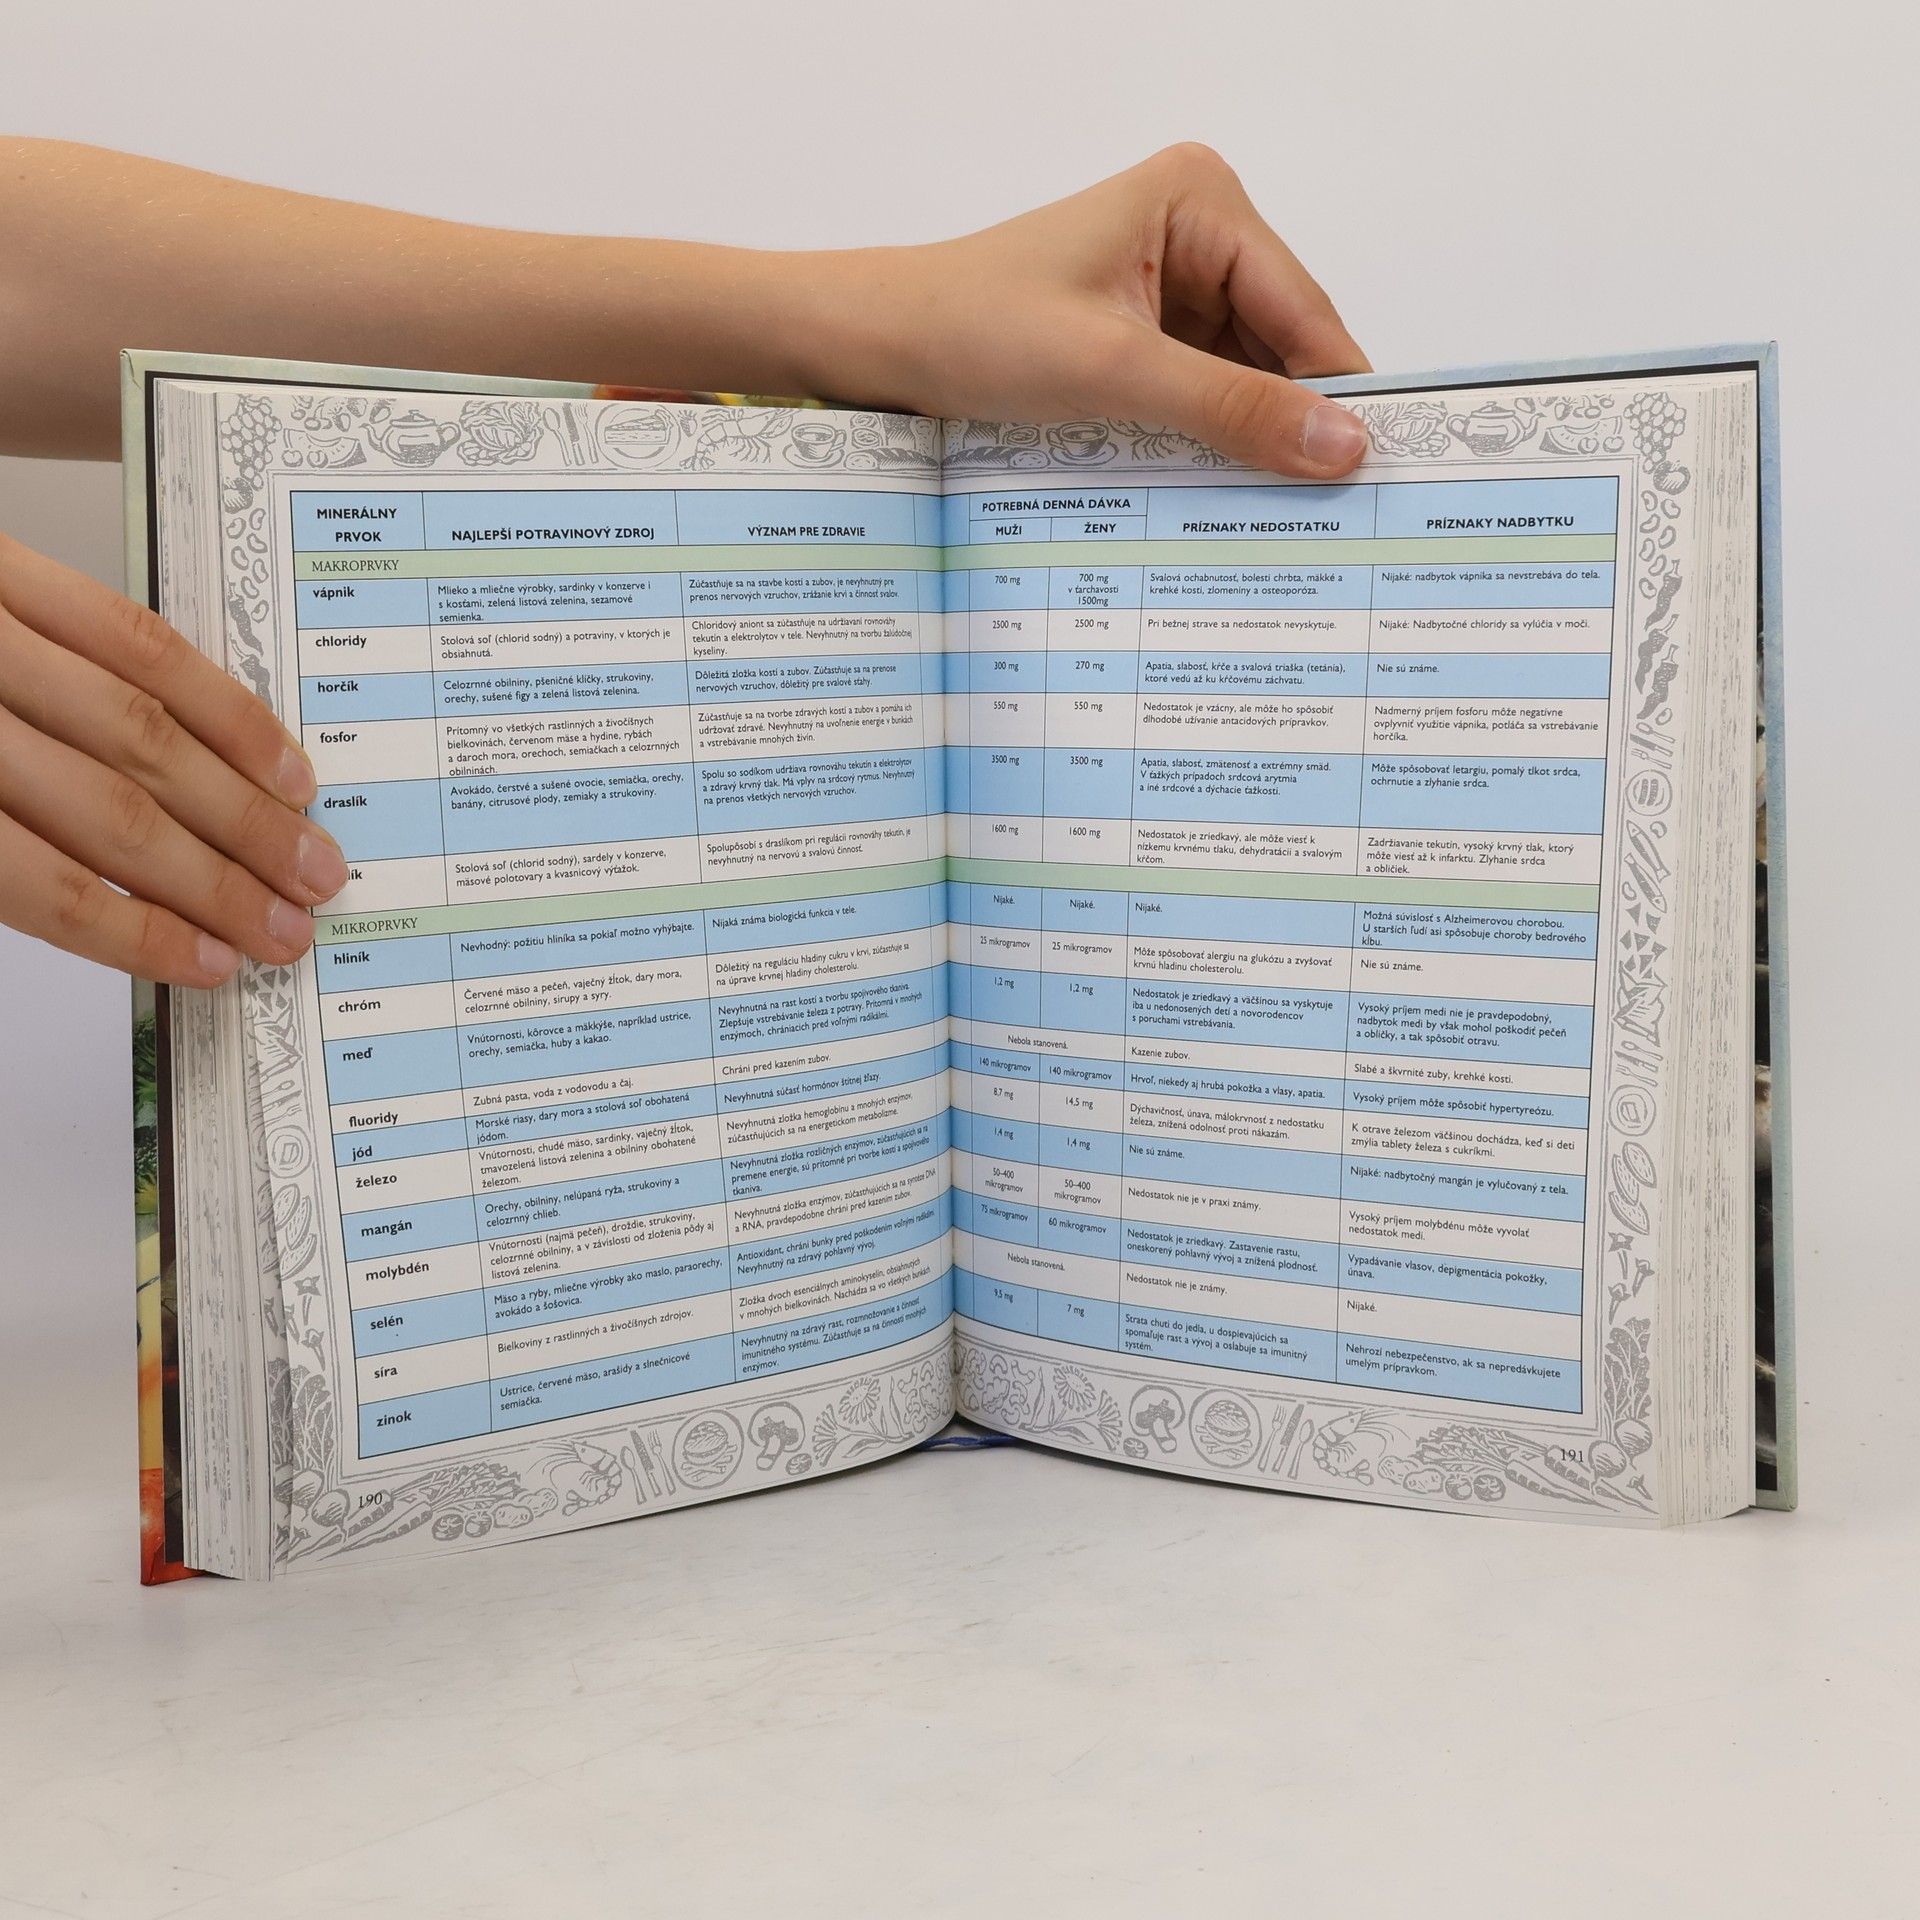 MINERÁLNY
PRVOK
NAJLEPŠÍ POTRAVINOVÝ ZDROJ
VÝZNAM PRE ZDRAVIE
MAKROPRVKY
vápnik
Mlieko a mliečne výrobky, sardinky v konzerve i
s kosťami, zelená listová zelenina, sezamové
semienka.
Zúčastňuje sa na stavbe kostí a zubov, je nevyhnutný pre
prenos nervových vzruchov, zrážanie krvi a činnosť svalov.
chloridy
Stolová soľ (chlorid sodný) a potraviny, v ktorých je
obsiahnutá.
Chloridový aniont sa zúčastňuje na udržiavaní rovnováhy
tekutín a elektrolytov v tele. Nevyhnutný na tvorbu žalúdočnej
kyseliny.
horčík
Celozrnné obilniny, pšeničné klíčky, strukoviny,
orechy, sušené figy a zelená listová zelenina.
Dôležitá zložka kostí a zubov. Zúčastňuje sa na prenose
nervových vzruchov, dôležitý pre svalové sťahy.
fosfor
Prítomný vo všetkých rastlinných a živočíšnych
bielkovinách, červenom mäse a hydine, rybách
a daroch mora, orechoch, semiačkach a celozrnných
obilninách.
Zúčastňuje sa na tvorbe zdravých kostí a zubov a pomáha ich
udržovať zdravé. Nevyhnutný na uvoľnenie energie v bunkách
a vstrebávanie mnohých živín.
draslík
Avokádo, čerstvé a sušené ovocie, semiačka, orechy,
banány, citrusové plody, zemiaky a strukoviny.
Spolu so sodíkom udržiava rovnováhu tekutín a elektrolytov
a zdravý krvný tlak. Má vplyv na srdcový rytmus. Nevyhnutný
na prenos všetkých nervových vzruchov.
lík
Stolová soľ (chlorid sodný), sardely v konzerve,
mäsové polotovary a kvasnicový výťažok.
Spolupôsobí s draslíkom pri regulácii rovnováhy tekutín, je
nevyhnutný na nervovú a svalovú činnosť.
MIKROPRVKY
hliník
Nevhodný: požitiu hliníka sa pokiaľ možno vyhýbajte.
Nijaká známa biologická funkcia v tele.
chróm
Červené mäso a pečeň, vaječný žĺtok, dary mora,
celozrnné obilniny, sirupy a syry.
Dôležitý na reguláciu hladiny cukru v krvi, zúčastňuje sa
na úprave krvnej hladiny cholesterolu.
meď
Vnútornosti, kôrovce a mäkkýše, napríklad ustrice,
orechy, semiačka, huby a kakao.
Nevyhnutná na rast kostí a tvorbu spojivového tkaniva.
Zlepšuje vstrebávanie železa z potravy. Prítomná v mnohých
enzýmoch, chrániacich pred voľnými radikálmi.
fluoridy
Zubná pasta, voda z vodovodu a čaj.
Chráni pred kazením zubov.
jód
Morské riasy, dary mora a stolová soľ obohatená
jódom.
Nevyhnutná súčasť hormónov štítnej žľazy.
železo
Vnútornosti, chudé mäso, sardinky, vaječný žĺtok,
tmavozelená listová zelenina a obilniny obohatené
železom.
Nevyhnutná zložka hemoglobínu a mnohých enzýmov,
zúčastňujúcich sa na energetickom metabolizme.
mangán
Orechy, obilniny, nelúpaná ryža, strukoviny a
celozrnný chlieb.
Nevyhnutná zložka rozličných enzýmov, zúčastňujúcich sa na
premene energie, sú prítomné pri tvorbe kostí a spojivového
tkaniva.
molybdén
Vnútornosti (najmä pečeň), droždie, strukoviny,
celozrnné obilniny, a v závislosti od zloženia pôdy aj
listová zelenina.
Nevyhnutná zložka enzýmov, zúčastňujúcich sa na syntéze DNA
a RNA, pravdepodobne chráni pred kazením zubov.
selén
Mäso a ryby, mliečne výrobky ako maslo, paraorechy,
avokádo a šošovica.
Antioxidant, chráni bunky pred poškodením voľnými radikálmi.
Nevyhnutný na zdravý pohlavný vývoj.
síra
Bielkoviny z rastlinných a živočíšnych zdrojov.
Zložka dvoch esenciálnych aminokyselín, obsiahnutých
v mnohých bielkovinách. Nachádza sa vo všetkých bunkách
zinok
Ustrice, červené mäso, arašidy a slnečnicové
semiačka.
Nevyhnutný na zdravý rast, rozmnožovanie a činnosť
imunitného systému. Zúčastňuje sa na činnosti mnohých
enzýmov.
190
POTREBNÁ DENNÁ DÁVKA
MUŽI
ŽENY
PRÍZNAKY NEDOSTATKU
PRÍZNAKY NADBYTKU
700 mg
700 mg
v ťarchavosti
1500mg
Svalová ochabnutosť, bolesti chrbta, mäkké a
krehké kosti, zlomeniny a osteoporóza.
Nijaké: nadbytok vápnika sa nevstrebáva do tela.
2500 mg
2500 mg
Pri bežnej strave sa nedostatok nevyskytuje.
Nijaké: Nadbytočné chloridy sa vylúčia v moči.
300 mg
270 mg
Apatia, slabosť, kŕče a svalová triaška (tetánia),
ktoré vedú až ku kŕčovému záchvatu.
Nie sú známe.
550 mg
550 mg
Nedostatok je vzácny, ale môže ho spôsobiť
dlhodobé užívanie antacidových prípravkov.
Nadmerný príjem fosforu môže negatívne
ovplyvniť využitie vápnika, potláča sa vstrebávanie
horčíka.
3500 mg
3500 mg
Apatia, slabosť, zmätenosť a extrémny smäd.
V ťažkých prípadoch srdcová arytmia
a iné srdcové a dýchacie ťažkosti.
Môže spôsobovať letargiu, pomalý tlkot srdca,
ochrnutie a zlyhanie srdca.
1600 mg
1600 mg
Nedostatok je zriedkavý, ale môže viesť k
nízkemu krvnému tlaku, dehydratácii a svalovým
kŕčom.
Zadržiavanie tekutín, vysoký krvný tlak, ktorý
môže viesť až k infarktu. Zlyhanie srdca
a obličiek.
Nijaké.
Nijaké.
Nijaké.
Možná súvislosť s Alzheimerovou chorobou.
U starších ľudí asi spôsobuje choroby bedrového
kĺbu.
25 mikrogramov
25 mikrogramov
Môže spôsobovať alergiu na glukózu a zvyšovať
krvnú hladinu cholesterolu.
Nie sú známe.
1,2 mg
1,2 mg
Nedostatok je zriedkavý a väčšinou sa vyskytuje
iba u nedonosených detí a novorodencov
s poruchami vstrebávania.
Vysoký príjem medi nie je pravdepodobný,
nadbytok medi by však mohol poškodiť pečeň
a obličky, a tak spôsobiť otravu.
Nebola stanovená.
Kazenie zubov.
Slabé a škvrnité zuby, krehké kosti.
140 mikrogramov
140 mikrogramov
Hrvoľ, niekedy aj hrubá pokožka a vlasy, apatia.
Vysoký príjem môže spôsobiť hypertyreózu.
8,7 mg
14,5 mg
Dýchavičnosť, únava, málokrvnosť z nedostatku
železa, znížená odolnosť proti nákazám.
K otrave železom väčšinou dochádza, keď si deti
zmýlia tablety železa s cukríkmi.
1,4 mg
1,4 mg
Nie sú známe.
Nijaké: nadbytočný mangán je vylučovaný z tela.
50–400
mikrogramov
50–400
mikrogramov
Nedostatok nie je v praxi známy.
Vysoký príjem molybdénu môže vyvolať
nedostatok medi.
75 mikrogramov
60 mikrogramov
Nedostatok je zriedkavý. Zastavenie rastu,
oneskorený pohlavný vývoj a znížená plodnosť.
Vypadávanie vlasov, depigmentácia pokožky,
únava.
Nebola stanovená.
Nedostatok nie je známy.
Nijaké.
9,5 mg
7 mg
Strata chuti do jedla, u dospievajúcich sa
spomaľuje rast a vývoj a oslabuje sa imunitný
systém.
Nehrozí nebezpečenstvo, ak sa nepredávkujete
umelým prípravkom.
191